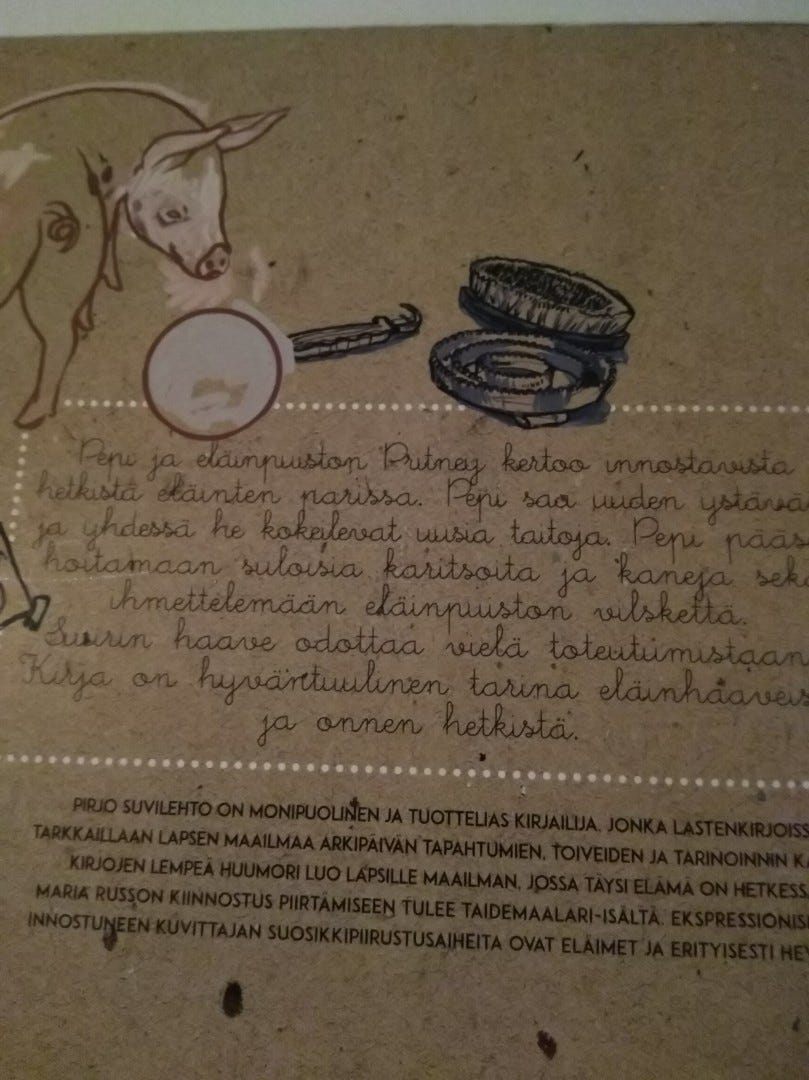 Pepi ja eläinpuiston Putney kertoo innostavista
hetkistä eläinten parissa. Pepi saa uuden ystävä
ja yhdessä he kokeilevat uusia taitoja. Pepi pääs
hoitamaan suloisia karitsoita ja kaneja sekä
ihmettelemään eläinpuiston vilskettä.
Suirin haave odottaa vielä toteutumistaan
Kirja on hyväntuulinen tarina eläinhaaveis
ja onnen hetkistä.
PIRJO SUVILEHTO ON MONIPUOLINEN JA TUOTTELIAS KIRJAILIJA, JONKA LASTENKIRJOISS
TARKKAILLAAN LAPSEN MAAILMAA ARKIPÄIVÄN TAPAHTUMIEN, TOIVEIDEN JA TARINOINNIN K
KIRJOJEN LEMPEÄ HUUMORI LUO LAPSILLE MAAILMAN, JOSSA TÄYSI ELÄMÄ ON HETKESS
MARIA RUSSON KIINNOSTUS PIIRTÄMISEEN TULEE TAIDEMAALARI-ISÄLTÄ. EKSPRESSIONIS
INNOSTUNEEN KUVITTAJAN SUOSIKKIPIIRUSTUSAIHEITA OVAT ELÄIMET JA ERITYISESTI HEV